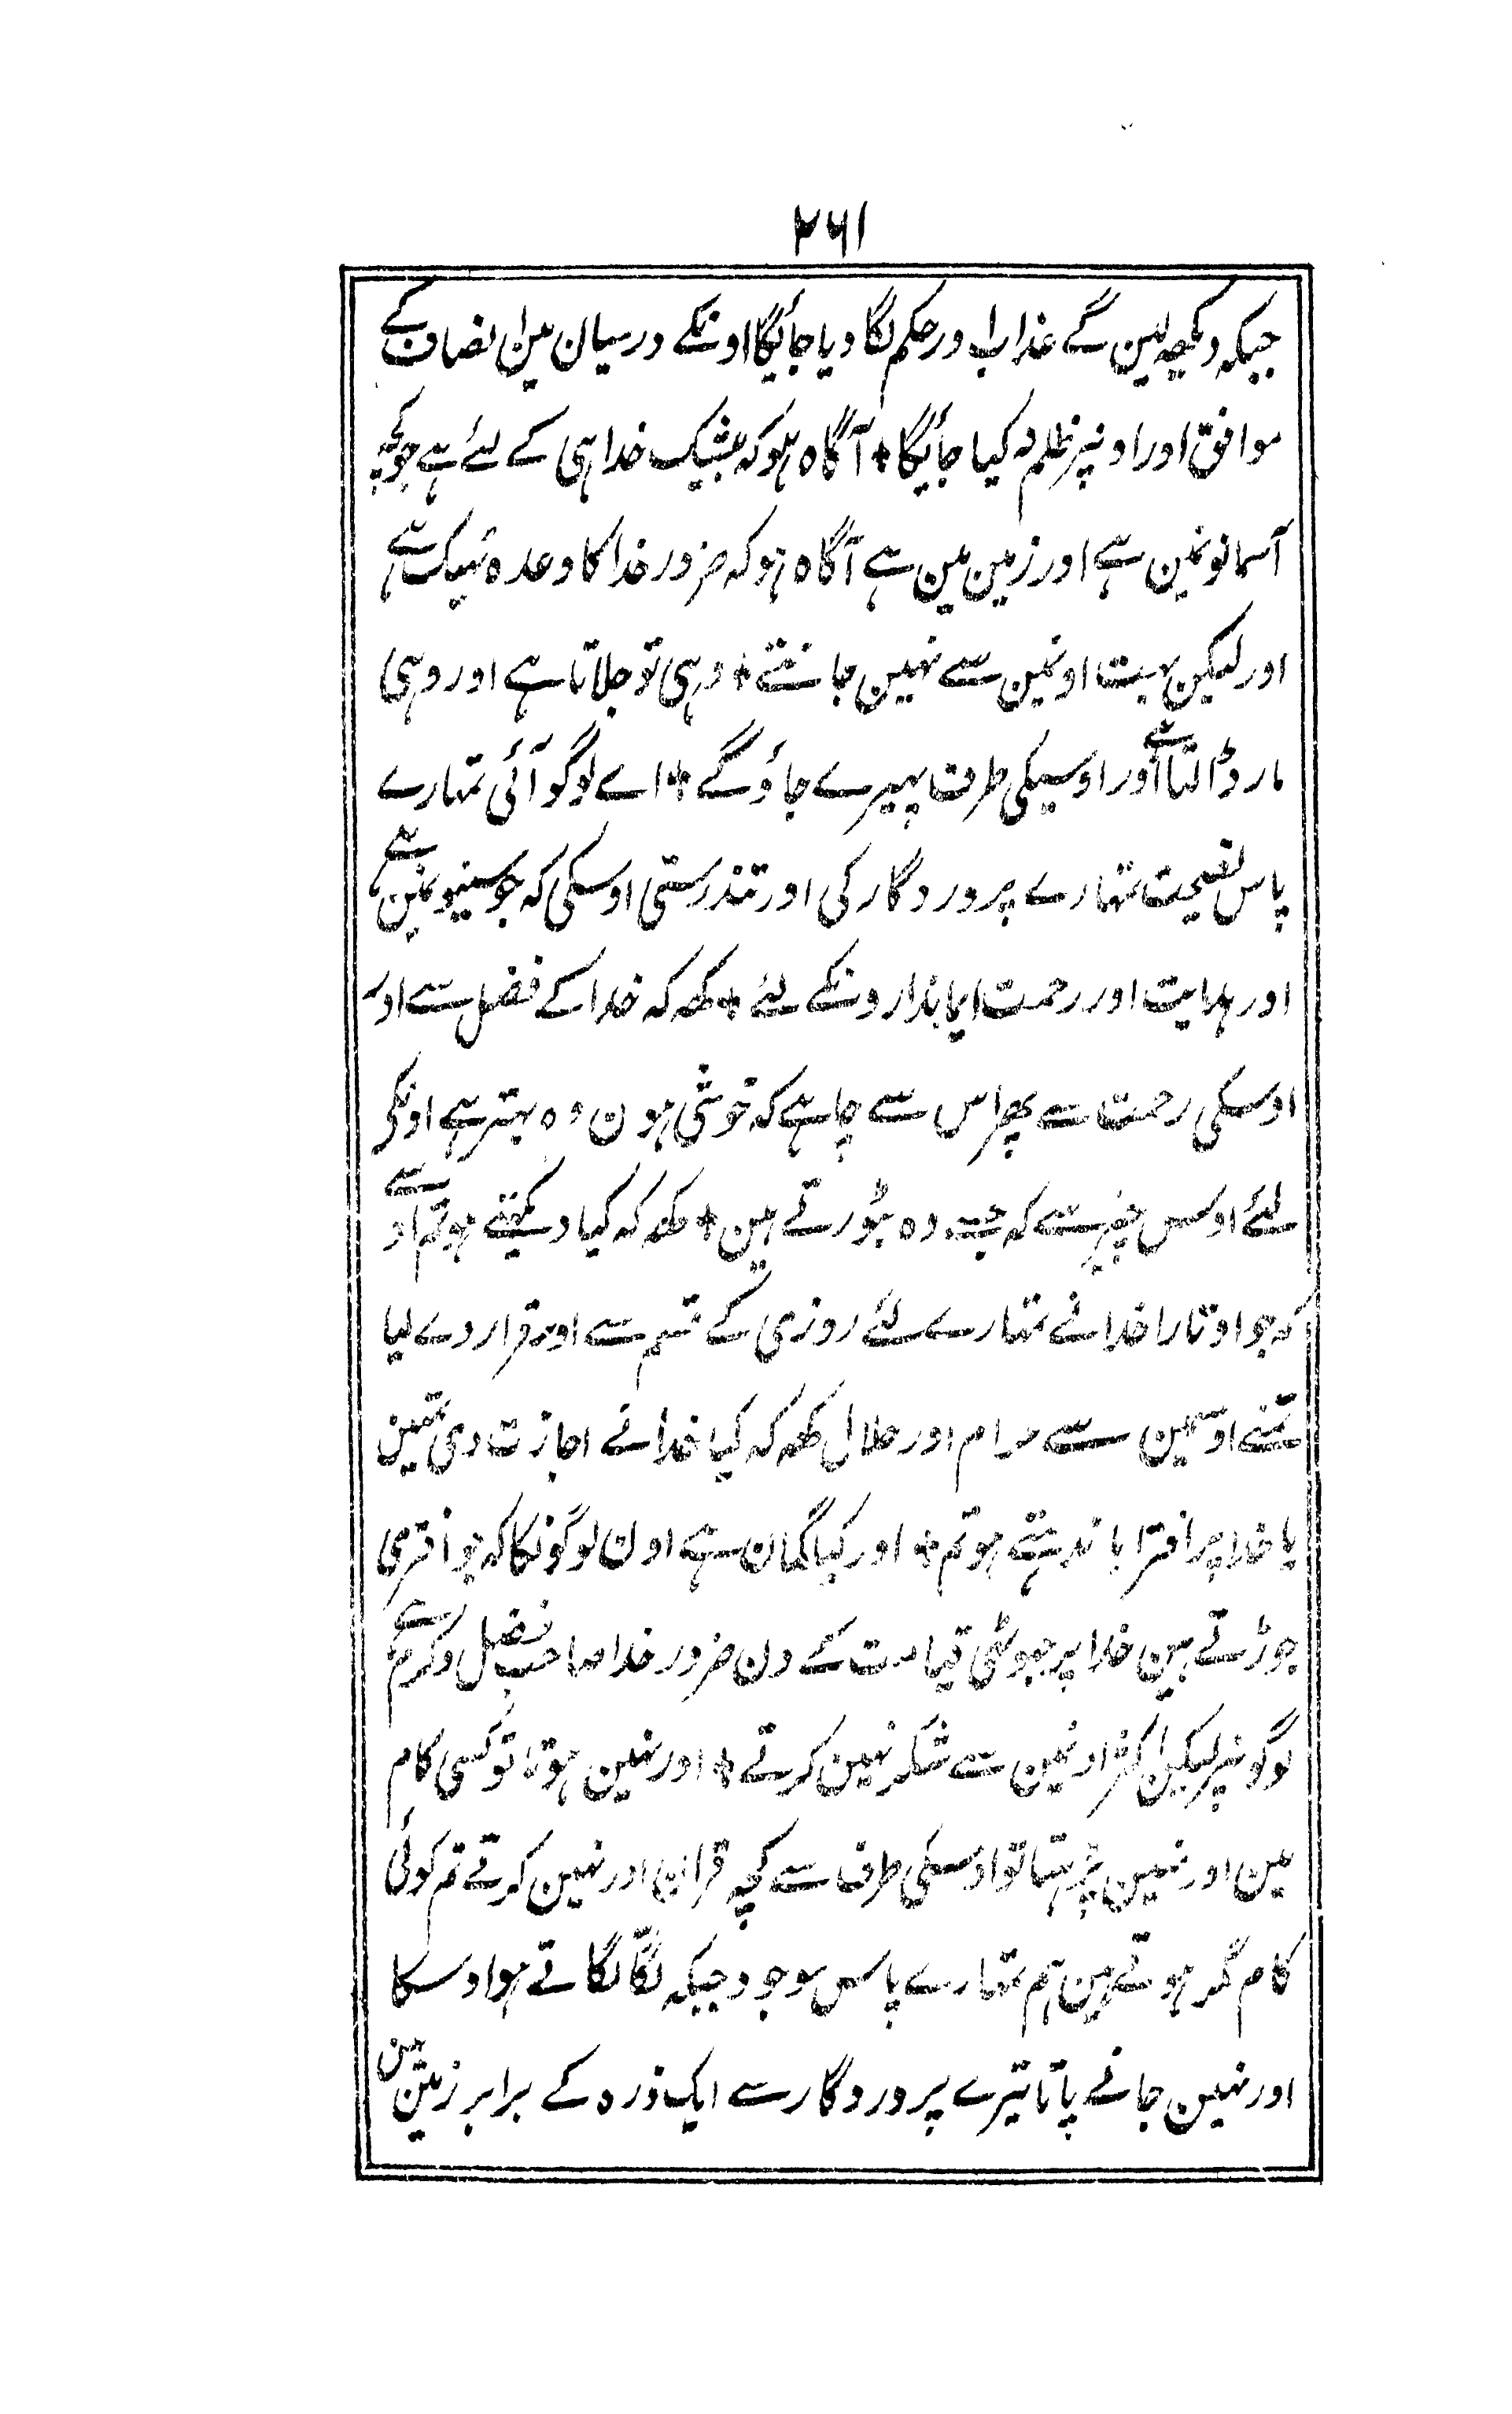 ۲۶۱
جبکہ دیکھ لین گے عذاب اور حکم لگا دیا جائیگا اونکے درمیان مین انصاف کے
موافق اور اونپر ظلم نہ کیا جائیگا + آگاہ ہو کہ بیشک خدا ہی کے لئے ہے جو کچھ
آسمانونمین ہے اور زمین مین ہے آگاہ ہو کہ ضرور خدا کا وعدہ ٹھیک ہے
اور لیکن بہت اونمین سے نہین جانتے + وہی تو جلاتا ہے اور وہی
مار ڈالتا ہے اور اوسیکی طرف پھیرے جاؤ گے + اے لوگو آئی تمہارے
پاس نصیحت تمہارے پروردگار کی اور تندرستی اوسکی کہ جو سینیونمین ہے
اور ہدایت اور رحمت ایماندارونکے لئے + کھہ کہ خدا کے فضل سے اور
اوسکی رحمت سے پھر اس سے چاہے کہ خوشی ہون وہ بہتر ہے اونکی
لئے اوس چیز سے کہ جسے وہ بٹورتے ہین + کھہ کہ کیا دیکھتے ہو تم اوسے
کہ جو اوتارا خدا نے تمہارے لئے روزی کے قسم سے اور قرار دے لیا
تمنے اوسمین سے حرام اور حلال کھہ کہ کیا خدا نے اجازت دی تمہین
یا خدا پر افترا باندہتے ہو تم + اور کیا گمان ہے اون لوگونکا کہ جو افتری
جوڑتے ہین خدا پر جھوٹھی قیامت کے دن ضرور خدا صاحب فضل و کرم ہے
لوگونپر لیکن اکثر اونمین سے شکر نہین کرتے + اور نہین ہوتا تو کسی کام
مین اور نہین پڑہتا تو اوسکی طرف سے کچھ قران اور نہین کرتے تم کوئی
کام مگر ہوتے ہین ہم تمہارے پاس موجود جبکہ لگا لگاتے ہو اوسکا
اور نہین جانے پاتا تیرے پروردگار سے ایک ذرہ کے برابر زمین مین